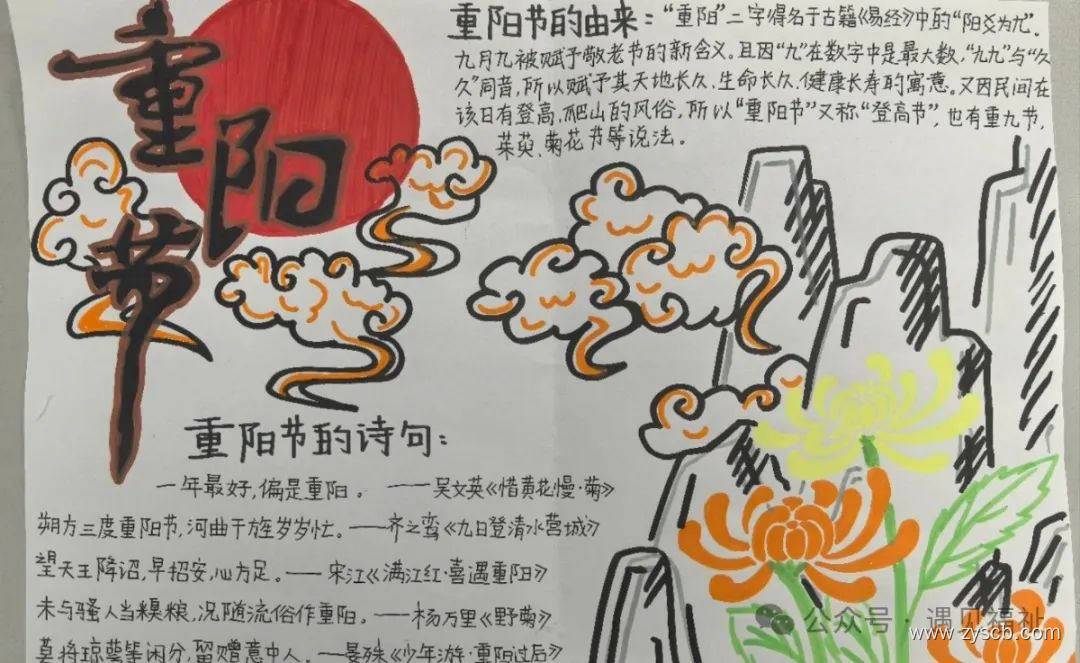 重阳节
重阳节的由来：“重阳”二字得名于古籍《易经》中的“阳爻为九”。
九月九被赋予敬老节的新含义。且因“九”在数字中是最大数，“九九”与“久
久”同音，所以赋予其天地长久、生命长久、健康长寿的寓意。又因民间在
该日有登高、爬山的风俗，所以“重阳节”又称“登高节”，也有重九节，
茱萸、菊花节等说法。
重阳节的诗句：
一年最好，偏是重阳。——吴文英《惜黄花慢·菊》
朔方三度重阳节，河曲干旌岁岁忙。——齐之鸾《九日登清水营城》
望天王降诏，早招安，心方足。——宋江《满江红·喜遇重阳》
未与骚人当糗粮，况随流俗作重阳。——杨万里《野菊》
莫将琼萼等闲分，留赠意中人。——晏殊《少年游·重阳过后》
公众号·遇见福祉
www.zyscb.com